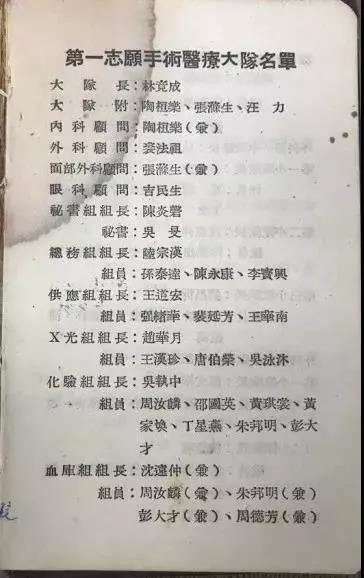 第一志願手術醫療大隊名單
大隊長：林竟成
大隊附：陶桓樂、張滌生、汪力
內科顧問：陶桓樂（兼）
外科顧問：裘法祖
面部外科顧問：張滌生（兼）
眼科顧問：吉民生
祕書組組長：陳炎磬
祕書：吳旻
總務組組長：陸宗漢
組員：孫泰達、陳永康、李寶興
供應組組長：王道宏
組員：張緒華、裴延芳、王華南
X光組組長：趙華月
組員：王漢珍、唐伯榮、吳泳沐
化驗組組長：吳執中
組員：周汝麟、邵國英、黃琪裳、黃
家煥、丁星燕、朱邦明、彭大
才
血庫組組長：沈遠仲（兼）
組員：周汝麟（兼）、朱邦明（兼）
彭大才（兼）、周德芳（兼）